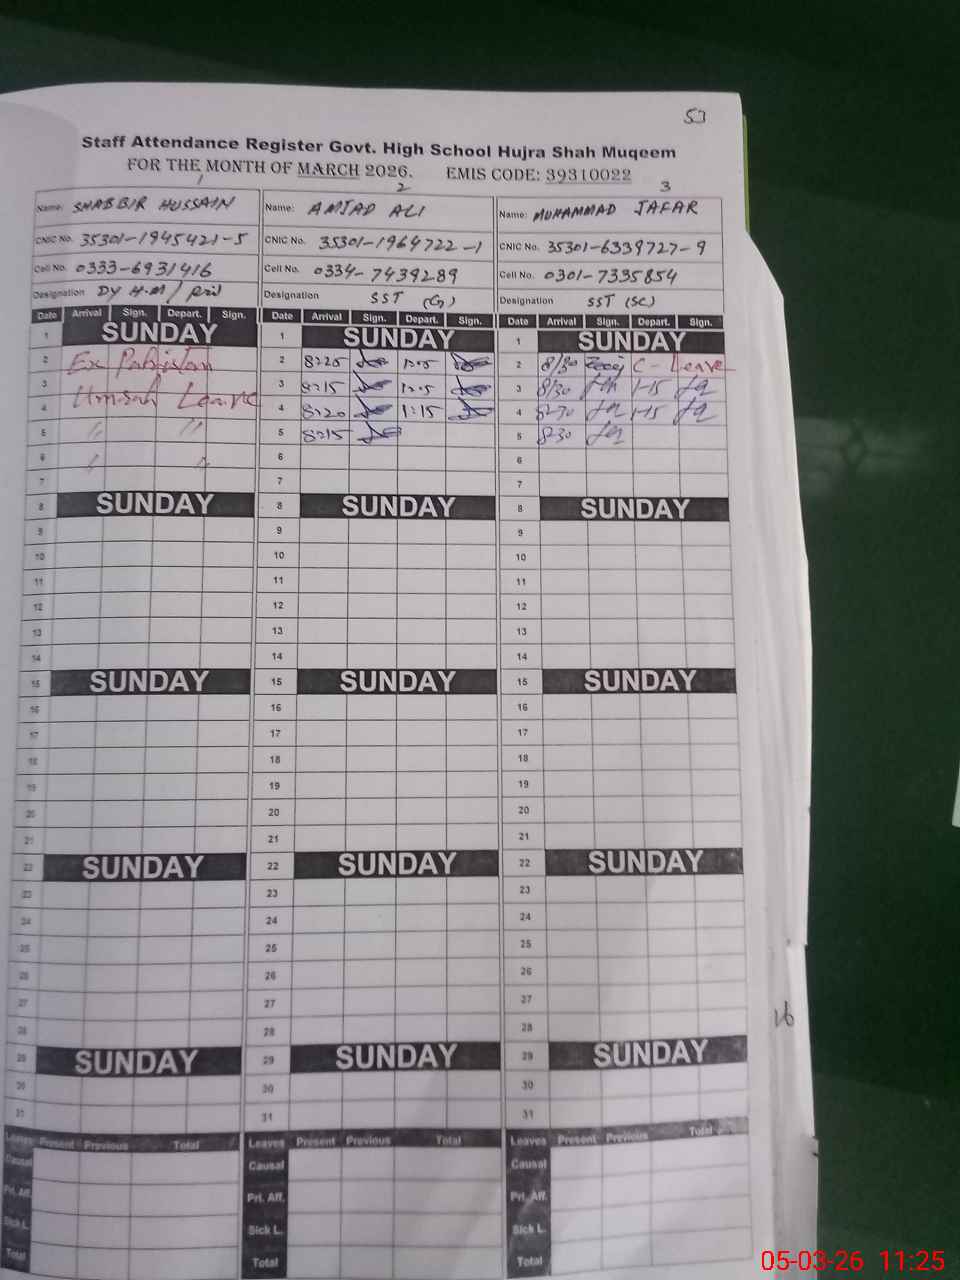 53
Staff Attendance Register Govt. High School Hujra Shah Muqeem
FOR THE MONTH OF MARCH 2026. EMIS CODE: 39310022
1 2 3
Name: SHABBIR HUSSAIN Name: AMJAD ALI Name: MUHAMMAD JAFAR
CNIC No. 35301-1945421-5 CNIC No. 35301-1964722-1 CNIC No. 35301-6339727-9
Cell No. 0333-6931416 Cell No. 0334-7439289 Cell No. 0301-7335854
Designation DY H.M / Designation SST (G) Designation SST (SC)
Date Arrival Sign. Depart. Sign. Date Arrival Sign. Depart. Sign. Date Arrival Sign. Depart. Sign.
1 SUNDAY 1 SUNDAY 1 SUNDAY
2 Ex Pakistan 2 8:25 1:05 2 8/30 C-Leave
3 Umrah Leave 3 8:15 1:05 3 8/30 1-15
4 4 8:20 1:15 4 8-30 1-15
5 " " 5 8:15 5 8-30
6 " " 6 6
7 7 7
8 SUNDAY 8 SUNDAY 8 SUNDAY
9 9 9
10 10 10
11 11 11
12 12 12
13 13 13
14 14 14
15 SUNDAY 15 SUNDAY 15 SUNDAY
16 16 16
17 17 17
18 18 18
19 19 19
20 20 20
21 21 21
22 SUNDAY 22 SUNDAY 22 SUNDAY
23 23 23
24 24 24
25 25 25
26 26 26
27 27 27
28 28 28
29 SUNDAY 29 SUNDAY 29 SUNDAY
30 30 30
31 31 31
Leaves Present Previous Total Leaves Present Previous Total Leaves Present Previous Total
Causal Causal Causal
Pri. Aff. Pri. Aff. Pri. Aff.
Sick L. Sick L. Sick L.
Total Total Total
05-03-26 11:25